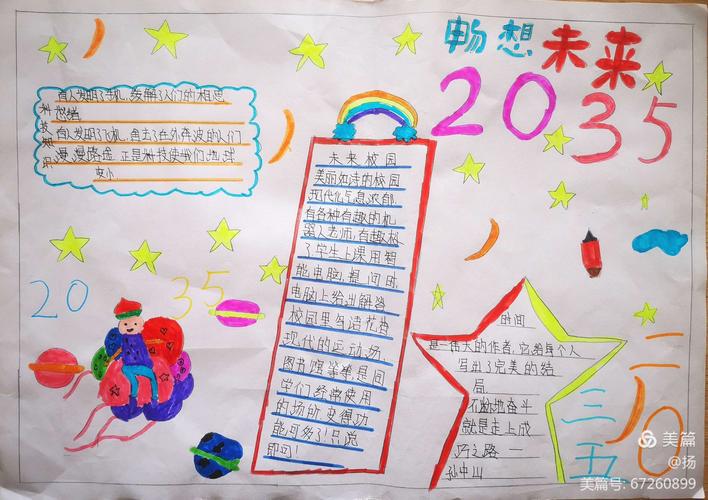 畅想未来
2035
科技知识
有人发明了手机,缓解了人们的相思
愁绪
有人发明了飞机,免去了在外奔波的人们
漫漫路途 正是科技使我们地球
变小
未来校园
美丽如诗的校园
现代化气息浓郁
有各种有趣的机
器人老师,有趣极
了学生上课用智
能电脑,提问时
电脑上给出解答
校园里鸟语花香
现代的运动场,
图书馆等等,是同
学们经常使用
的场所,变得功
能可多了!只说
即可!
20 35
时间
是一伟大的作者,它给每个人
写出了完美的结
局
不断地奋斗
就是走上成
功之路 —
孙中山
二〇
三五
美篇
@扬
美篇号: 67260899